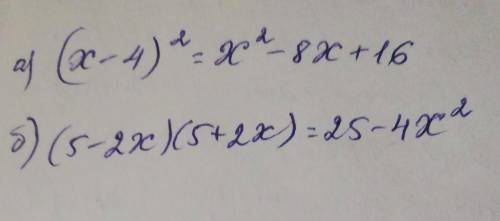 а) (x-4)² = x² - 8x + 16
б) (5-2x)(5+2x) = 25 - 4x²